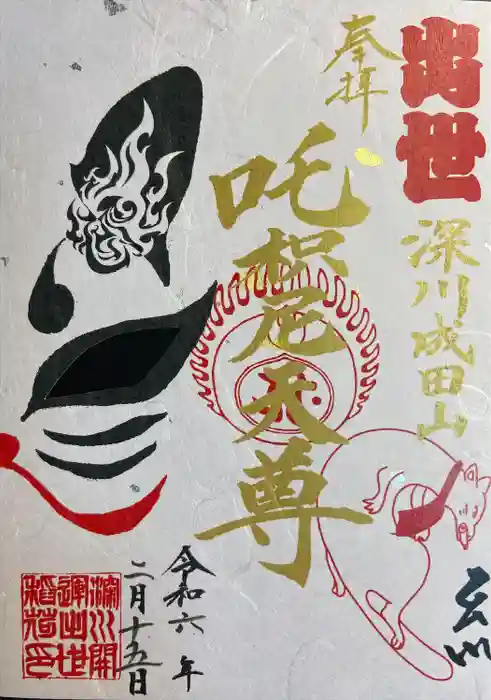 出世
深川成田山
奉拝
吒枳尼天尊
令和六年
二月十五日
深川開
運出世
稲荷印